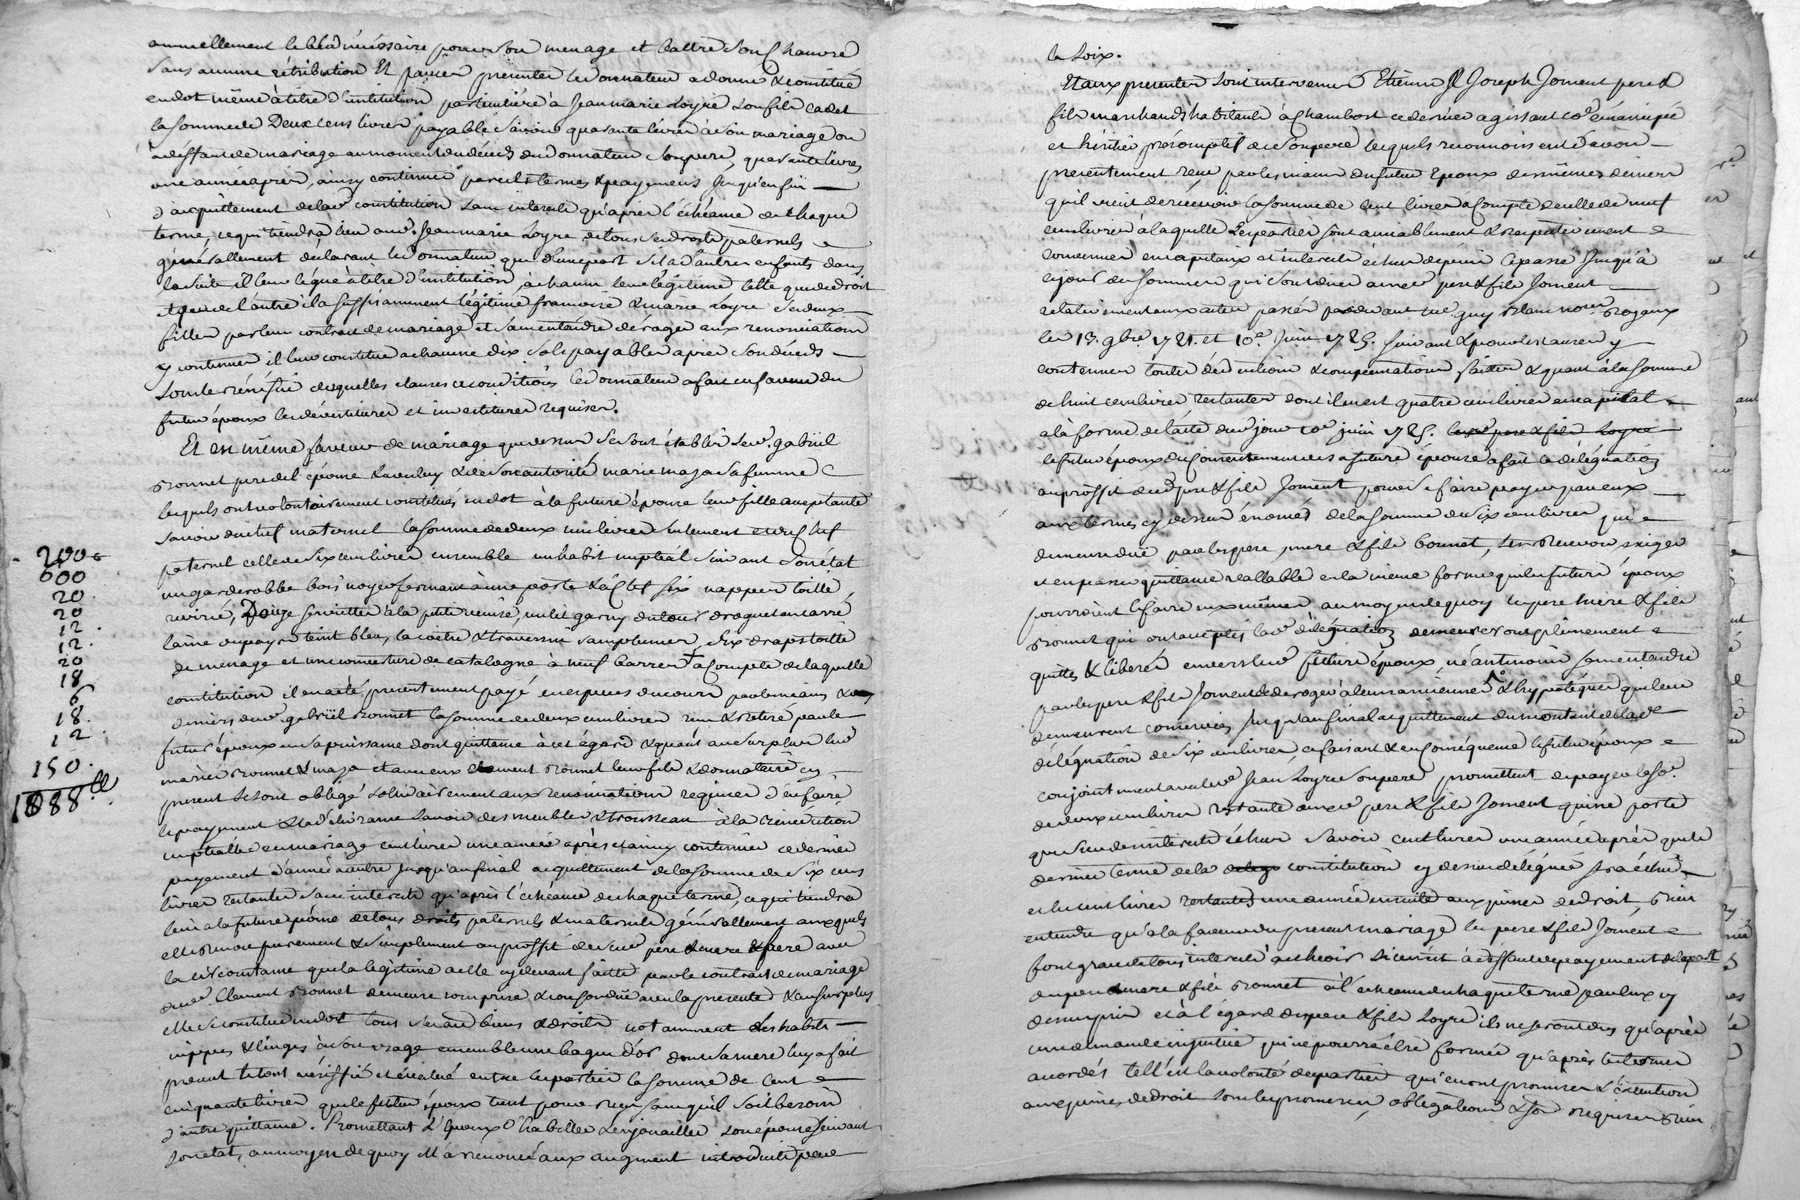 annuellement le bled nécéssaire pour son menage et battre son chanvre
sans aucune rétribution Et par ces présentes le donnateur a donné & constitué
en dot même à titre d'institution particulière à Jean marie Loyre son fils cadet
la somme de Deux cens livres payable savoir quarante livres à son mariage ou
à deffaut de mariage au moment du décéds du donnateur son pere, quarante livres
une année après, ainsy continuer pareils termes & payemens jusqu'en fin
d'acquittement de lad. constitution sans interets qu'après l'échéance de chaque
terme, ce qui tiendra lieu aud. Jean marie Loyre de tous ses droits paternels
généralement déclarant le donnateur que d'une part s'il a d'autres enfants dans
la suite il leur légue à titre d'institution à chacun leur légitime telle que de droit
et que de l'autre il a suffisamment légitimé francoise & marie Loyre ses deux
filles par leur contrat de mariage et sans entendre déroger aux renonciations
y contenues il leur constitue a chacune dix sols payables après son décéds
sous le bénéfice desquelles clauses et conditions le donnateur a fait en faveur du
futur époux les dévestitures et investitures requises.
Et en même faveur de mariage que dessus se sont établis sr. gabriel
Bonnet pere de l'épouse & avec luy & de son autorité marie maja sa femme
lesquels ont volontairement constitué en dot à la future épouse leur fille acceptante
savoir du chef maternel la somme de deux cens livres seulement et du chef
paternel celle de six cens livres ensemble un habit nuptial suivant son état
un garderobbe bois noyer fermant à une porte & à clef six nappes toille
ouvrée, Douze serviettes à la petite venise, un lit garny du tour de droguet en carré
laine du pays teint bleu, la coitre & traversin sans plumes, six draps toille
de menage et une couverture de catalogne à neuf barres + à compte de laquelle
constitution il en a été présentement payé en especes du cours par les mains &
deniers dud. gabriel Bonnet la somme de deux cens livres reçu & retiré par le
futur époux en sa puissance dont quittance à cet égard & quant au surplus led.
mariés Bonnet & maja et avec eux clement Bonnet leur fils & donnataire cy
present se sont obligé solidairement aux renonciations requises d'en faire
le payement & la délivrance savoir des meubles & trousseau à la benediction
nuptialle du mariage cent livres une année après et ainsy continuer ce dernier
payement d'année à autre jusqu'au final acquittement de la somme de six cens
livres restantes sans interets qu'après l'échéance de chaque terme, ce qui tiendra
lieu à la future épouse de tous droits paternels & maternels généralement auxquels
elle renonce purement & simplement au proffit de sesd. pere & mere & frere avec
la circonstance que la légitime a elle cy devant faitte par le contrat de mariage
dud. Clement Bonnet demeure comprise & confondüe avec la présente & au surplus
elle se constitue en dot tous ses autres biens & droits notamment ses habits
nippes & linges à son usage ensemble une bague d'or dont sa mere luy a fait
present le tout vériffié et évalué entre les parties la somme de Cent
cinquante livres que le futur époux tient pour reçu sans qu'il soit besoin
d'autre quittance. Promettant l'époux d'habiller & enjoyailler son épouse suivant
son état, au moyen de quoy elle a renoncé aux augment introduits par
200
600
20
20
12
12
20
18
6
18
12
150
1088 ll
la Loix.
Et aux presentes sont intervenus Etienne & Joseph Joment pere &
fils marchands habitants à Chambost ce dernier agissant co.e émancipé
et héritier présomptif de son pere lesquels reconnoissent d'avoir
presentement reçu par les mains du futur Epoux des mêmes deniers
qu'il vient de recevoir la somme de cent livres à compte de celle de neuf
cens livres à laquelle les parties sont amiablement & respectivement
convenues en capitaux et interets échus depuis le passé jusqu'à
ce jour des sommes qui sont dues auxd. pere & fils Joment
relativement aux actes passés par devant me. guy Blanc nore. Royaux
les 13. 9bre. 1781. et 10e. juin 1785. suivant & pour les causes y
contenues toutes déductions & compensations faittes & quant à la somme
de huit cens livres restantes dont il en est quatre cens livres en capital
à la forme de l'acte dud. jour 10e juin 1785. lesd. pere & fils Loyre
le futur époux du consentement de sa future épouse a fait la délégation
au proffit desd. pere & fils Joment pour se faire payer par eux
aux termes cy dessus énoncés de la somme de six cens livres qui
demeure düe par les pere, mere & fils bonnet, les recevoir exiger
et en passer quittance vallable en la même forme que le futur époux
pourroient le faire eux mêmes au moyen de quoy les pere mere & fils
Bonnet qui ont accepté lad. délégation demeureront pleinement
quittes & libérés envers led. futur époux néantmoins sans entendre
par les pere & fils Joment déroger à leurs anciennes & hypotéques qui leur
demeurent conservées jusqu'au final acquittement du montant de lad.
délégation de six cens livres ce faisant & en conséquence le futur époux
conjointement avec led. Jean Loyre son pere promettent de payer la so.
de deux cens livres restante auxd. pere & fils Joment qui ne porte
que ses interets échus savoir cent livres une année après que le
dernier terme de la constitution cy dessus déléguée sera échu
et les cent livres restantes une année ensuite aux peines de droit, bien
entendu qu'à la faveur du present mariage les pere & fils Joment
font grace de tous interets à échoir si ce n'est à deffaut de payement de la part
des pere mere & fils Bonnet à l'échéance de chaque terme par eux cy
dessus pris et à l'égard des pere & fils Loyre ils ne seront dus qu'après
une demande injustice qui ne pourra être formée qu'après les termes
accordés tell'est la volonté des parties qui en ont promis & l'exécution
aux peines de droit sous les promesses, obligations & so. requises & bien